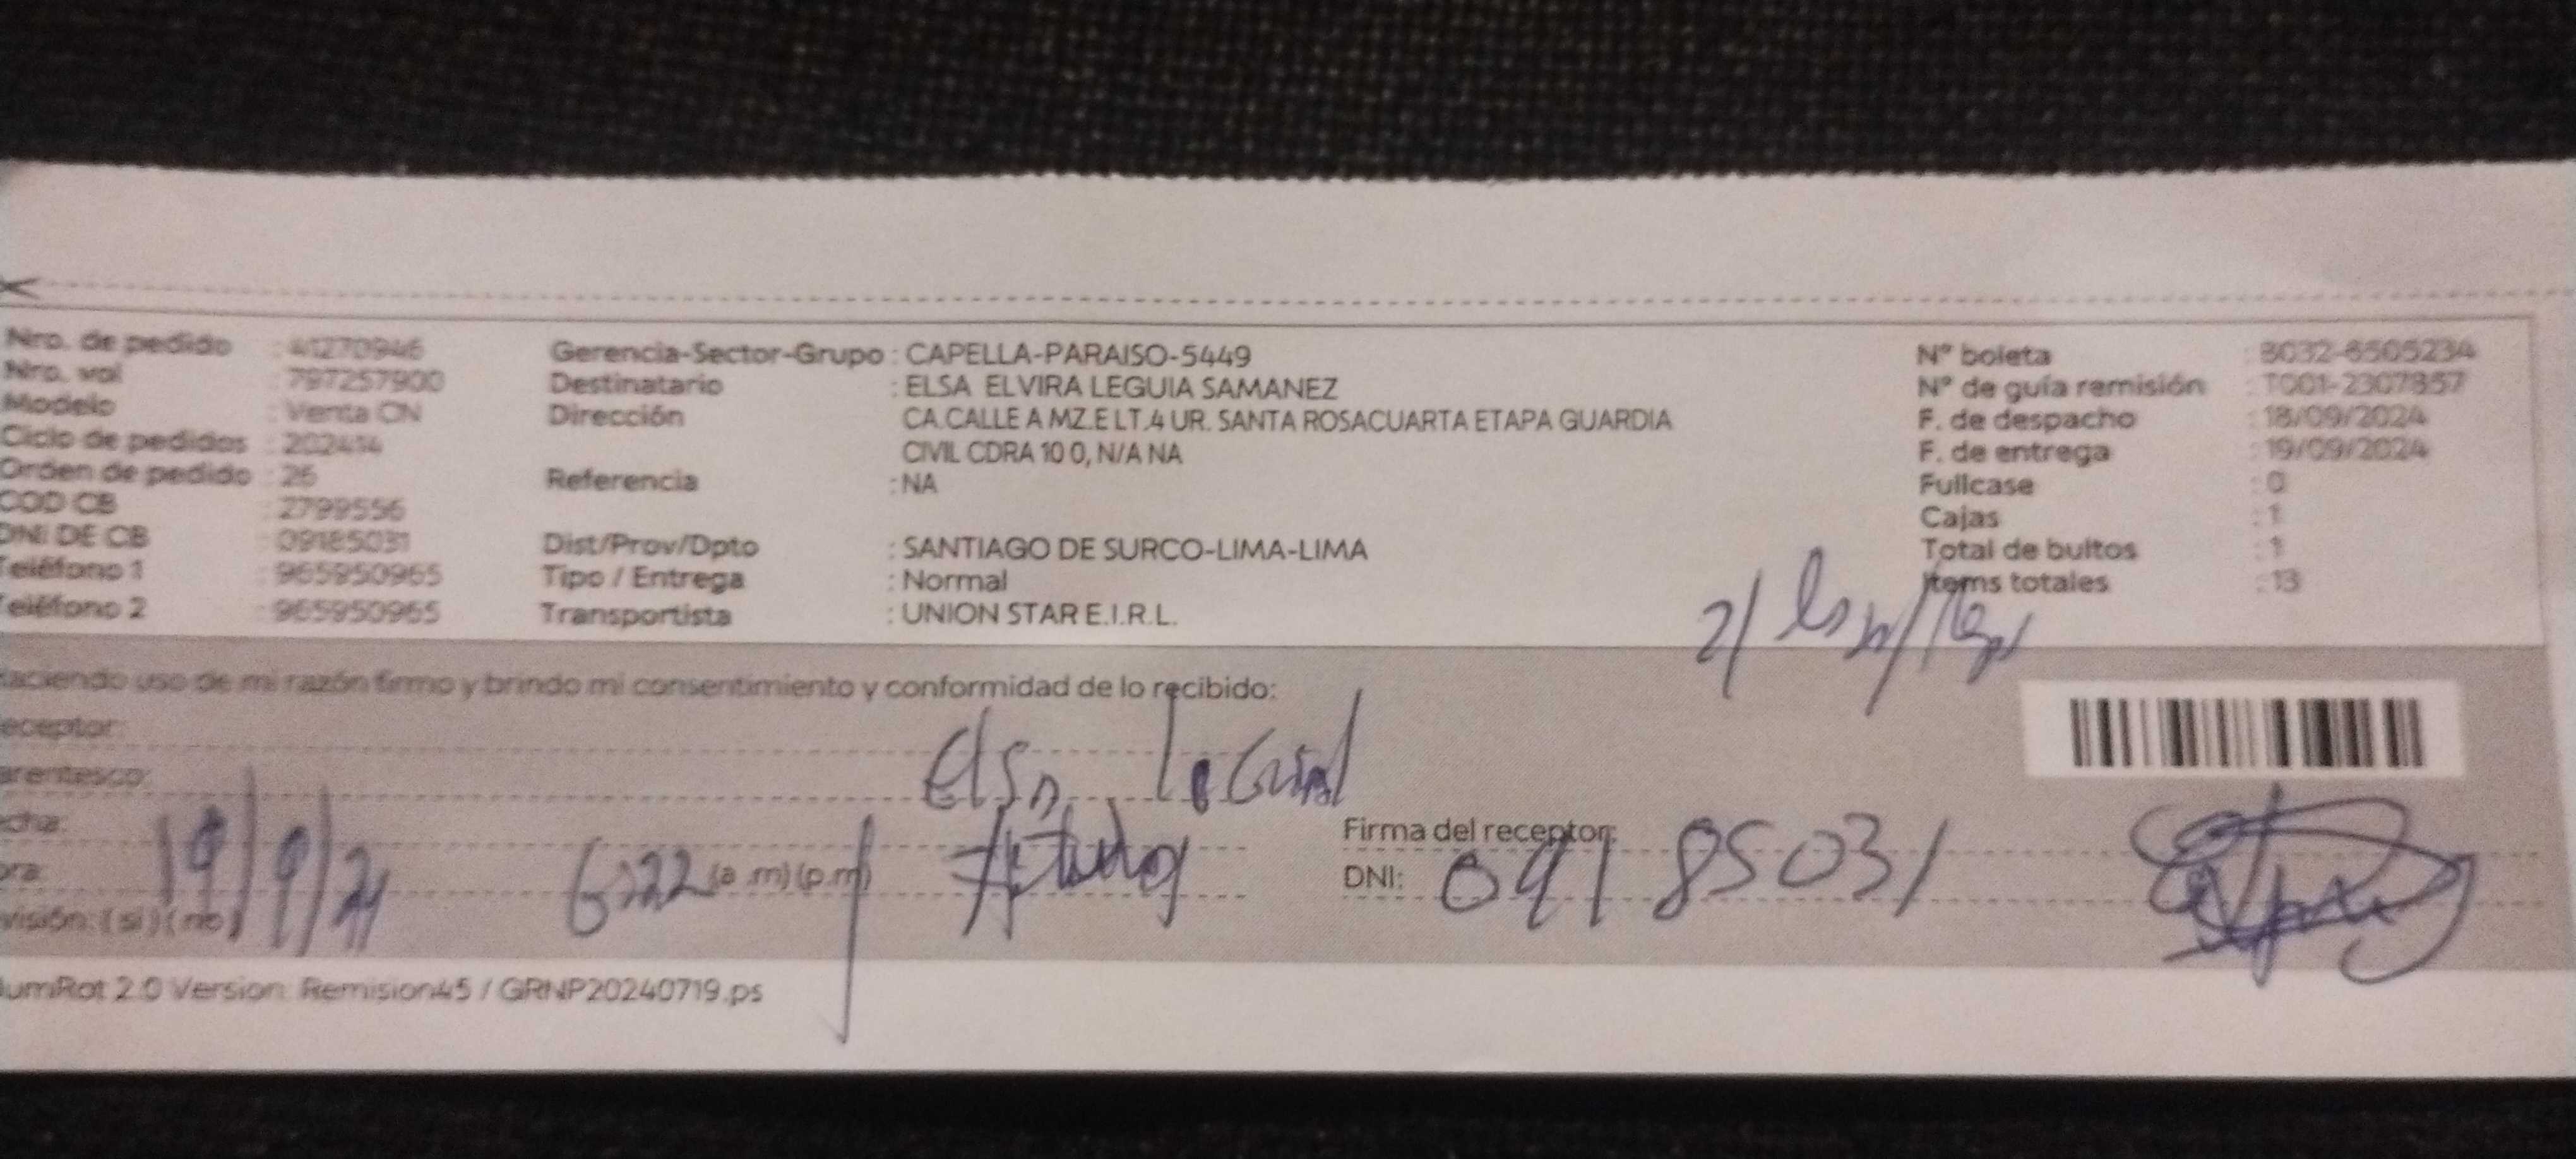 Nro. de pedido : 41270946
Nro. vol : 797257900
Modelo : Venta CN
Ciclo de pedidos : 202414
Orden de pedido : 26
COD CB : 2799556
DNI DE CB : 09185031
Teléfono 1 : 965950965
Teléfono 2 : 965950965
Gerencia-Sector-Grupo : CAPELLA-PARAISO-5449
Destinatario : ELSA ELVIRA LEGUIA SAMANEZ
Dirección CA.CALLE A MZ.E LT.4 UR. SANTA ROSACUARTA ETAPA GUARDIA
CIVIL CDRA 10 0, N/A NA
Referencia : NA
Dist/Prov/Dpto : SANTIAGO DE SURCO-LIMA-LIMA
Tipo / Entrega : Normal
Transportista : UNION STAR E.I.R.L.
N° boleta : B032-6505234
N° de guía remisión : T001-2307857
F. de despacho : 18/09/2024
F. de entrega : 19/09/2024
Fullcase : 0
Cajas : 1
Total de bultos : 1
Items totales : 13
aciendo uso de mi razón firmo y brindo mi consentimiento y conformidad de lo recibido:
eceptor:
arentesco:
Elsa
cha: 19/9/24
ora: 6:22 (a.m) (p.m)
visión: ( si ) ( no )
Titular
Firma del receptor:
DNI: 09185031
umRot 2.0 Version: Remision45 / GRNP20240719.ps